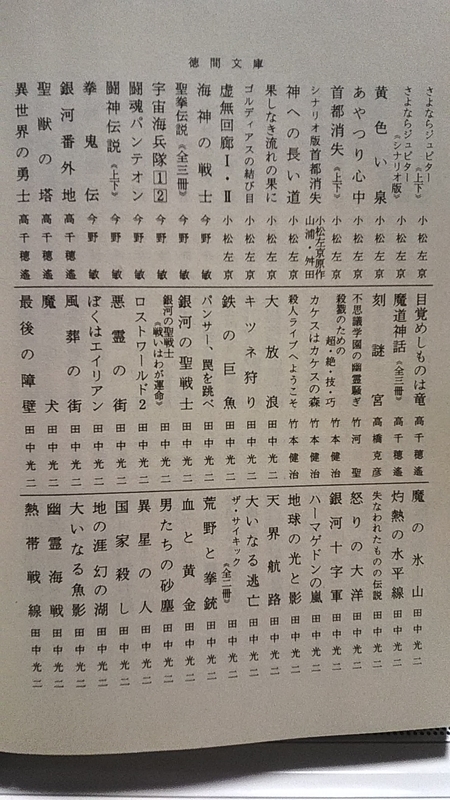 徳間文庫
さよならジュピター《上下》 小松左京
さよならジュピター《シナリオ版》 小松左京
黄色い泉 小松左京
あやつり心中 小松左京
首都消失《上下》 小松左京
シナリオ版首都消失 小松左京原作 山浦・舛田
神への長い道 小松左京
果しなき流れの果に 小松左京
ゴルディアスの結び目 小松左京
虚無回廊Ⅰ・Ⅱ 小松左京
海神の戦士 今野敏
聖拳伝説《全三冊》 今野敏
宇宙海兵隊12 今野敏
闘魂パンテオン 今野敏
闘神伝説《上下》 今野敏
拳鬼伝 今野敏
銀河番外地 高千穂遙
聖獣の塔 高千穂遙
異世界の勇士 高千穂遙
目覚めしものは竜 高千穂遙
魔道神話《全三冊》 高千穂遙
刻謎宮 高橋克彦
不思議学園の幽霊騒ぎ 竹河聖
殺戮のための超・絶・技・巧 竹本健治
カケスはカケスの森 竹本健治
殺人ライブへようこそ 竹本健治
大放浪 田中光二
キツネ狩り 田中光二
鉄の巨魚 田中光二
パンサー、罠を跳べ 田中光二
銀河の聖戦士 田中光二
銀河の聖戦士《戦いはわが運命》 田中光二
ロストワールド2 田中光二
悪霊の街 田中光二
ぼくはエイリアン 田中光二
風葬の街 田中光二
魔犬 田中光二
最後の障壁 田中光二
魔の氷山 田中光二
灼熱の水平線 田中光二
失なわれたものの伝説 田中光二
怒りの大洋 田中光二
銀河十字軍 田中光二
ハーマゲドンの嵐 田中光二
地球の光と影 田中光二
天界航路 田中光二
大いなる逃亡 田中光二
ザ・サイキック《全二冊》 田中光二
荒野と拳銃 田中光二
血と黄金 田中光二
男たちの砂塵 田中光二
異星の人 田中光二
国家殺し 田中光二
地の涯幻の湖 田中光二
大いなる魚影 田中光二
幽霊海戦 田中光二
熱帯戦線 田中光二